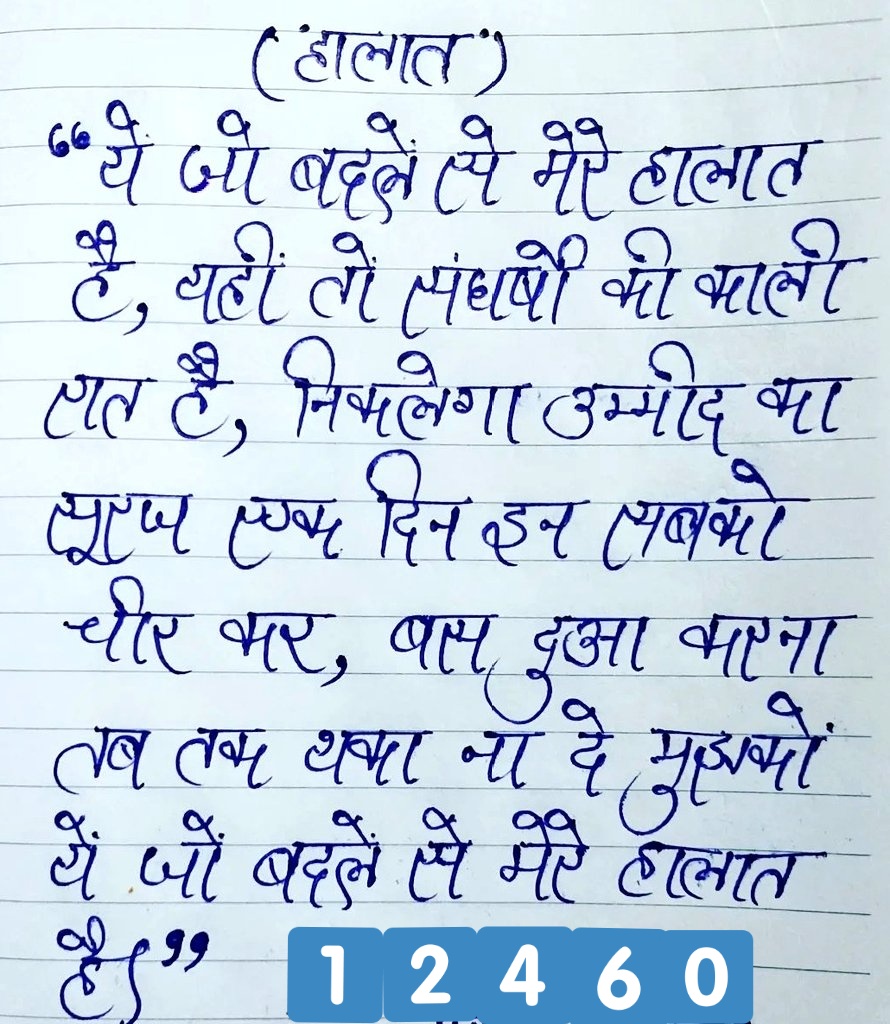 (हालात)
“यें जो बदलें से मेरे हालात
है, यहीं तो संघर्षो की काली
रात है, निकलेगा उम्मीद का
सूरज एक दिन इन सबको
चीर कर, बस दुआ करना
तब तक थका ना दे मुझकों
यें जों बदलें से मेरे हालात
है।”
12460